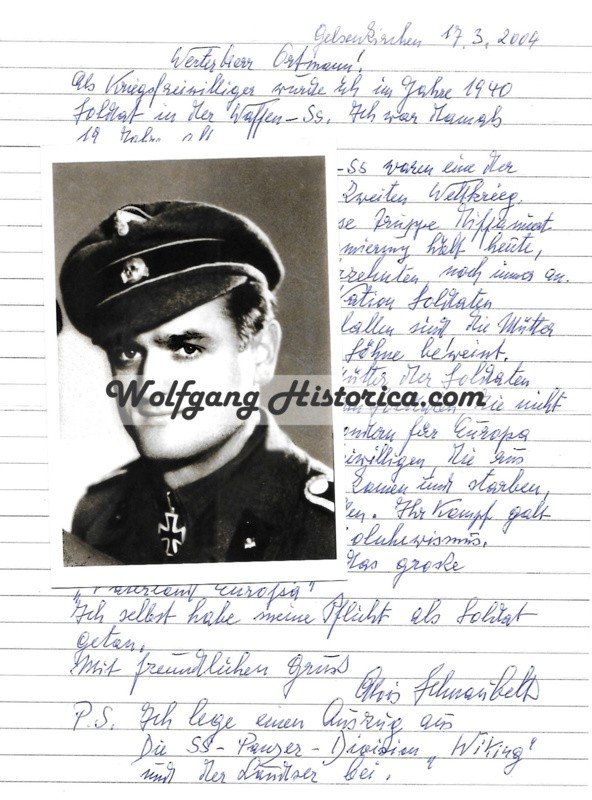 Gelsenkirchen 17.3.2004
Werter Herr Ortmann!
Als Kriegsfreiwilliger wurde ich im Jahre 1940
Soldat in der Waffen-SS. Ich war damals
19 Jahre alt
-SS waren eine der
Zweiten Weltkrieg.
se Truppe diffamiert
mierung hält heute,
rzehnten noch immer an.
ation Soldaten
fallen sind die Mütter
Söhne beweint.
Mütter der Soldaten
sie nicht
ondern für Europa
iwilligen, die aus
kamen und starben,
en. Ihr Kampf galt
olschewismus.
das große
Wolfgang Historica.com
"Vaterland Europa"
Ich selbst habe meine Pflicht als Soldat
getan.
Mit freundlichen Gruß
Alois Schnaubelt
P.S. Ich lege einen Auszug aus
Die SS-Panzer-Division "Wiking"
und der Landser bei.